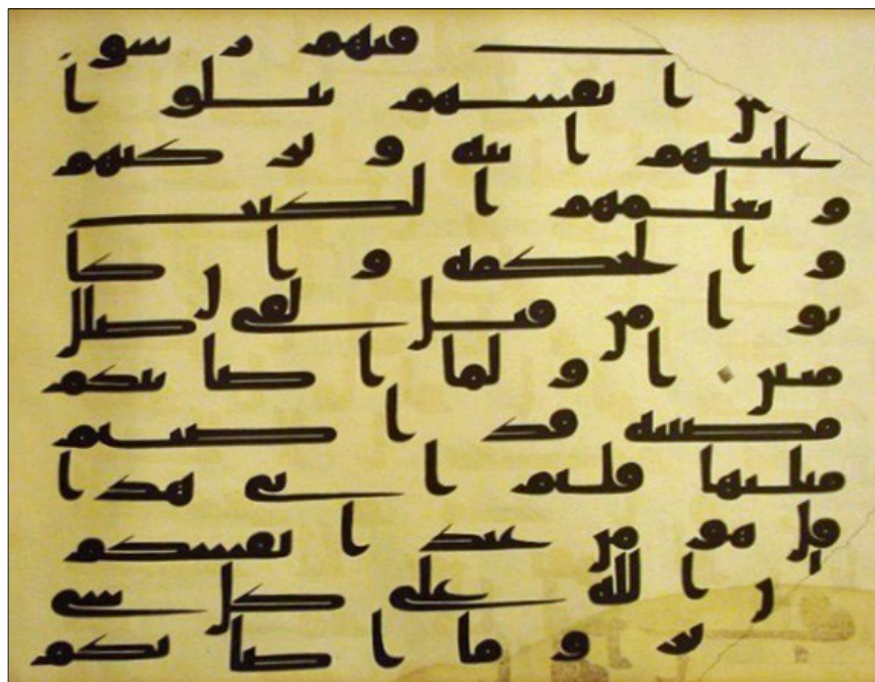 فيهم رسو
من انفسهم يتلوا
عليهم ايته ويزكيهم
ويعلمهم الكتب
والحكمه وان كا
نوا من قبل لفى ضلل
مبين اولما اصابتكم
مصيبه قد اصبتم
مثليها قلتم انى هذا
قل هو من عند انفسكم
ان الله على كل شى
ير وما اصابكم